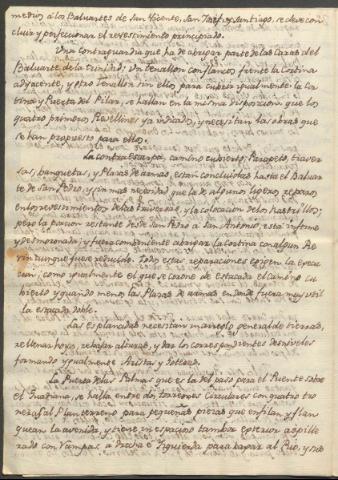 medios á los Baluartes de San Vicente, San Josef, y Santiago, se deve con
cluir y perfeccionar el revestimiento principiado.
Una Contraguardia que ha de abrigar parte de las Caras del
Baluarte de la Trinidad; Un tenallon con flancos, frente la Cortina
adyacente, y otro tenallon sin ellos, para cubrir igualmente la Cor
tina y Puerta del Pilar, se hallan en la misma disposicion que los
quatro primeros Revellines ya indicados, y necesitan las obras que
se han propuesto para ellos.
La Contraescarpa, camino cubierto, Parapeto, traver
sas, banquetas, y Plazas de armas, están concluidos hasta el Baluar
te de San Pedro, y sin mas necesidad que la de algunos ligeros reparos
en los revestimientos de las traversas, y la colocacion de los rastrillos;
pero la porcion restante desde San Pedro á San Antonio, está informe
y desmoronada; y fuera conveniente abrigar la Cortina con algun Re
vellin aunque fuese reducido. Todas estas reparaciones exigen la execu
cion, como igualmente el que se corone de estacada el Camino cu
bierto y quando menos las Plazas de armas en donde fuera muy util
la estacada doble.
Las esplanadas necesitan un arreglo general de tierras,
rellenar hoyos, rebajar alturas, y dar los correspondientes desniveles
formando igualmente Aristas y Goteras.
La Puerta de las Palmas que es la del paso para el Puente sobre
el Guadiana, se halla entre dos torreones Circulares con quatro tro
neras al Plan terreno para pequeñas piezas que enfilan y flan
quean la avenida, y tiene un espacioso tambor exterior aspille
rado con rampas á Derecha é Izquierda para bajar al Rio, y sus